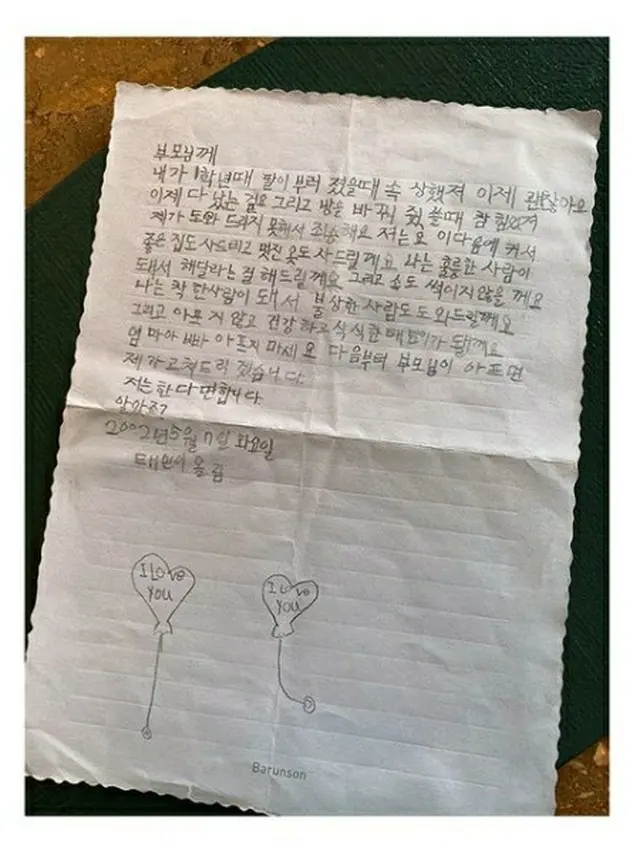 부모님께
내가 1학년때 팔이 부러 졌을때 속 상했져 이제 괜찮아요
이제 다 났는 걸요 그리고 방을 바꾸워 줬 쓸때 참 힘드셨져
제가 도와 드리지 못해서 죄송해요 저는요 이다음에 커서
좋은 집도 사드리고 멋진 옷도 사드릴께요 나는 훌륭한 사람이
돼서 해달라는 걸 해드릴께요 그리고 속도 썩이지 않을 께요
나는 착한사람이 돼서 불상한 사람도 도와드릴께요
그리고 아프지 않고 건강하고 식식한 태민이가 될께요
엄마 아빠 아프지 마세요 다음부터 부모님이 아프면
제가 고쳐드리겠습니다.
저는 한다면 합니다.
알아죠?
2002년 5월 7일 화요일
태민이 올림
I Love
YOU
I Love
YOU
Barunson